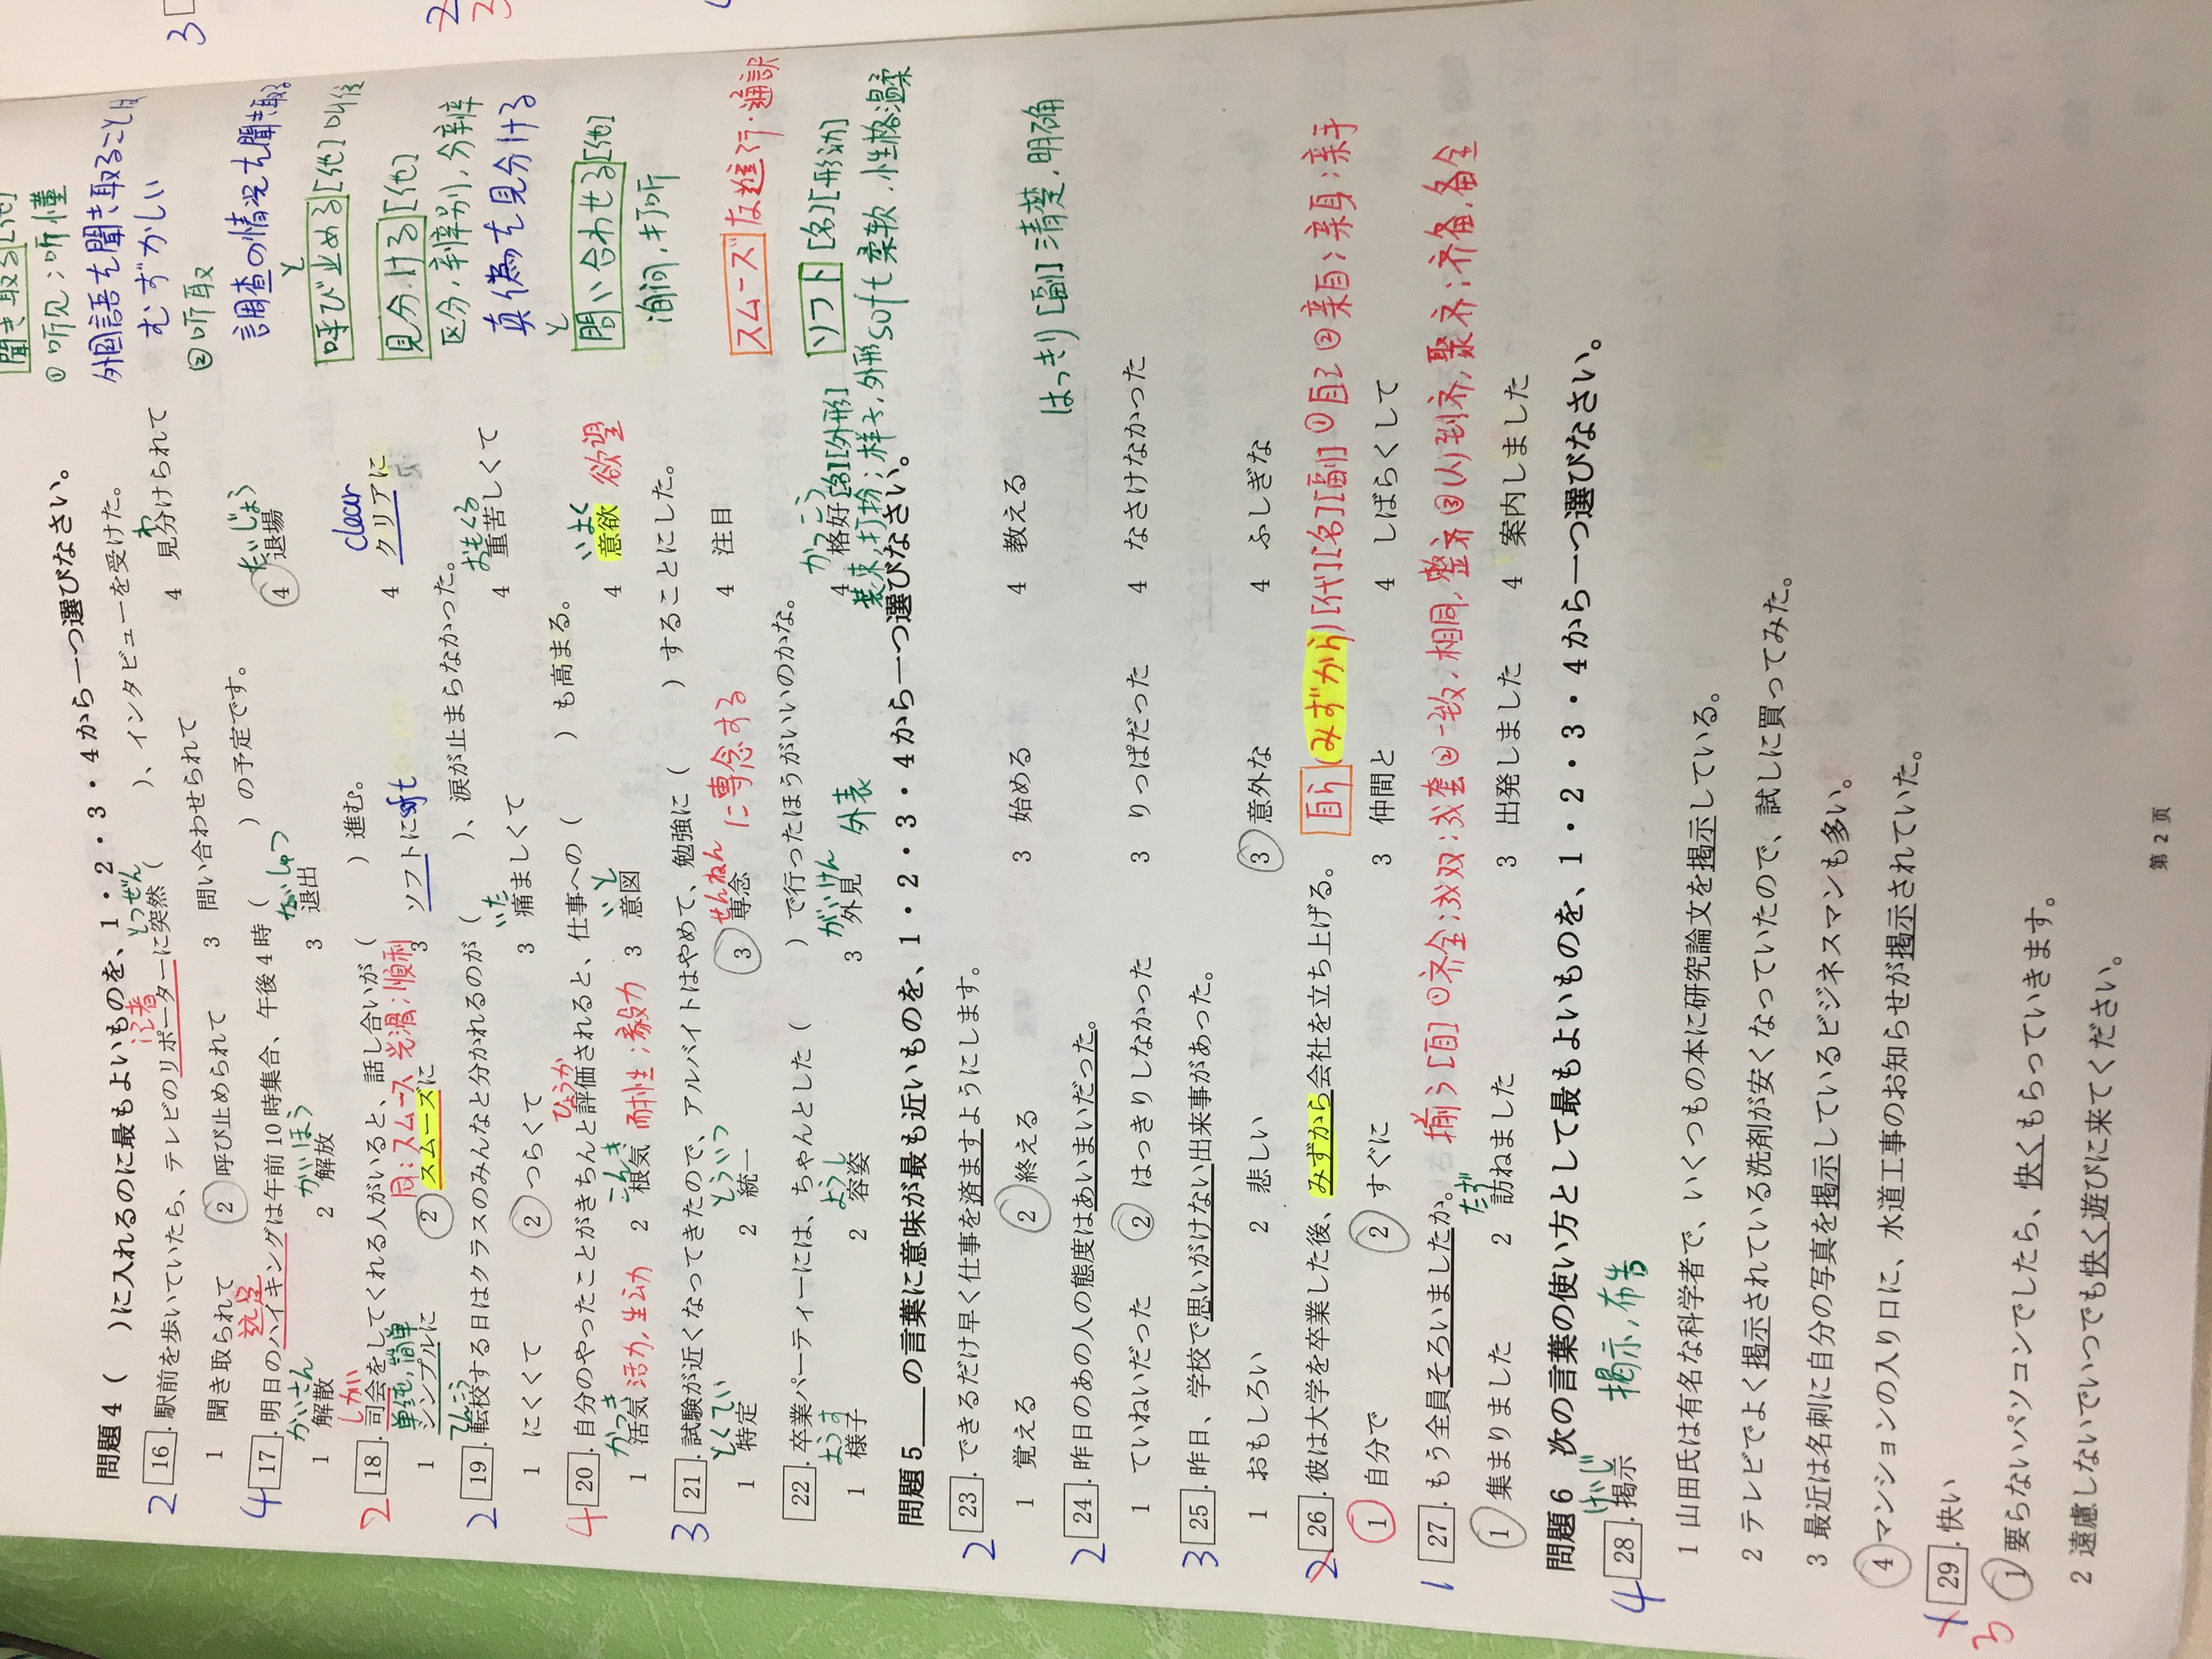 問題4 (　)に入れるのに最もよいものを、1・2・3・4から一つ選びなさい。
记者 とつぜん
2 16.駅前を歩いていたら、テレビのリポーターに突然(　)、インタビューを受けた。
1 聞き取られて 2 呼び止められて 3 問い合わせられて 4 見分けられて
わ
远足
4 17.明日のハイキングは午前10時集合、午後4時(　)の予定です。
かいさん かいほう たいしゅつ たいじょう
1 解散 2 解放 3 退出 4 退場
しかい
2 18.司会をしてくれる人がいると、話し合いが(　)進む。
单纯,簡単 同:スムース 光滑;順利 soft clear
1 シンプルに 2 スムーズに 3 ソフトに 4 クリアに
てんこう
2 19.転校する日はクラスのみんなと分かれるのが(　)、涙が止まらなかった。
いた おもくる
1 にくくて 2 つらくて 3 痛ましくて 4 重苦しくて
ひょうか
4 20.自分のやったことがきちんと評価されると、仕事への(　)も高まる。
かっき こんき いと いよく
1 活気 活力,生动 2 根気 耐性;毅力 3 意図 4 意欲 欲望
3 21.試験が近くなってきたので、アルバイトはやめて、勉強に(　)することにした。
とくてい とういつ せんねん に専念する
1 特定 2 統一 3 専念 4 注目
22.卒業パーティーには、ちゃんとした(　)で行ったほうがいいのかな。
ようす ようし がいけん 外表 かっこう
1 様子 2 容姿 3 外見 4 格好 [名][外形]
装束,打扮;样子,外形
問題5＿＿の言葉に意味が最も近いものを、1・2・3・4から一つ選びなさい。
2 23.できるだけ早く仕事を済ますようにします。
1 覚える 2 終える 3 始める 4 教える
2 24.昨日のあの人の態度はあいまいだった。
はっきり[副]清楚,明确
1 ていねいだった 2 はっきりしなかった 3 りっぱだった 4 なさけなかった
3 25.昨日、学校で思いがけない出来事があった。
1 おもしろい 2 悲しい 3 意外な 4 ふしぎな
2 26.彼は大学を卒業した後、みずから会社を立ち上げる。
自ら(みずから)[代][名][副]①自己②亲自;亲身;亲手
1 自分で 2 すぐに 3 仲間と 4 しばらくして
1 27.もう全員そろいましたか。
揃う[自]①齐全;成双;成套②一致,相同,整齐③(人)到齐,聚齐;齐备,备全
たず
1 集まりました 2 訪ねました 3 出発しました 4 案内しました
問題6 次の言葉の使い方として最もよいものを、1・2・3・4から一つ選びなさい。
けいじ
4 28.掲示 揭示,布告
1 山田氏は有名な科学者で、いくつもの本に研究論文を掲示している。
2 テレビでよく掲示されている洗剤が安くなっていたので、試しに買ってみた。
3 最近は名刺に自分の写真を掲示しているビジネスマンも多い。
4 マンションの入り口に、水道工事のお知らせが掲示されていた。
1 29.快い
3
1 要らないパソコンでしたら、快くもらっていきます。
2 遠慮しないでいつでも快く遊びに来てください。
第2页
聞き取る[他]
①听见;听懂
外国語を聞き取ることは
むずかしい
②听取
調査の情況を聞き取る
と
呼び止める[他]叫住
見分ける[他]
区分,辨别,分辨
真偽を見分ける
と
問い合わせる[他]
询问,打听
スムーズな進行・通訳
ソフト[名][形动]
soft 柔软,性格温柔
3